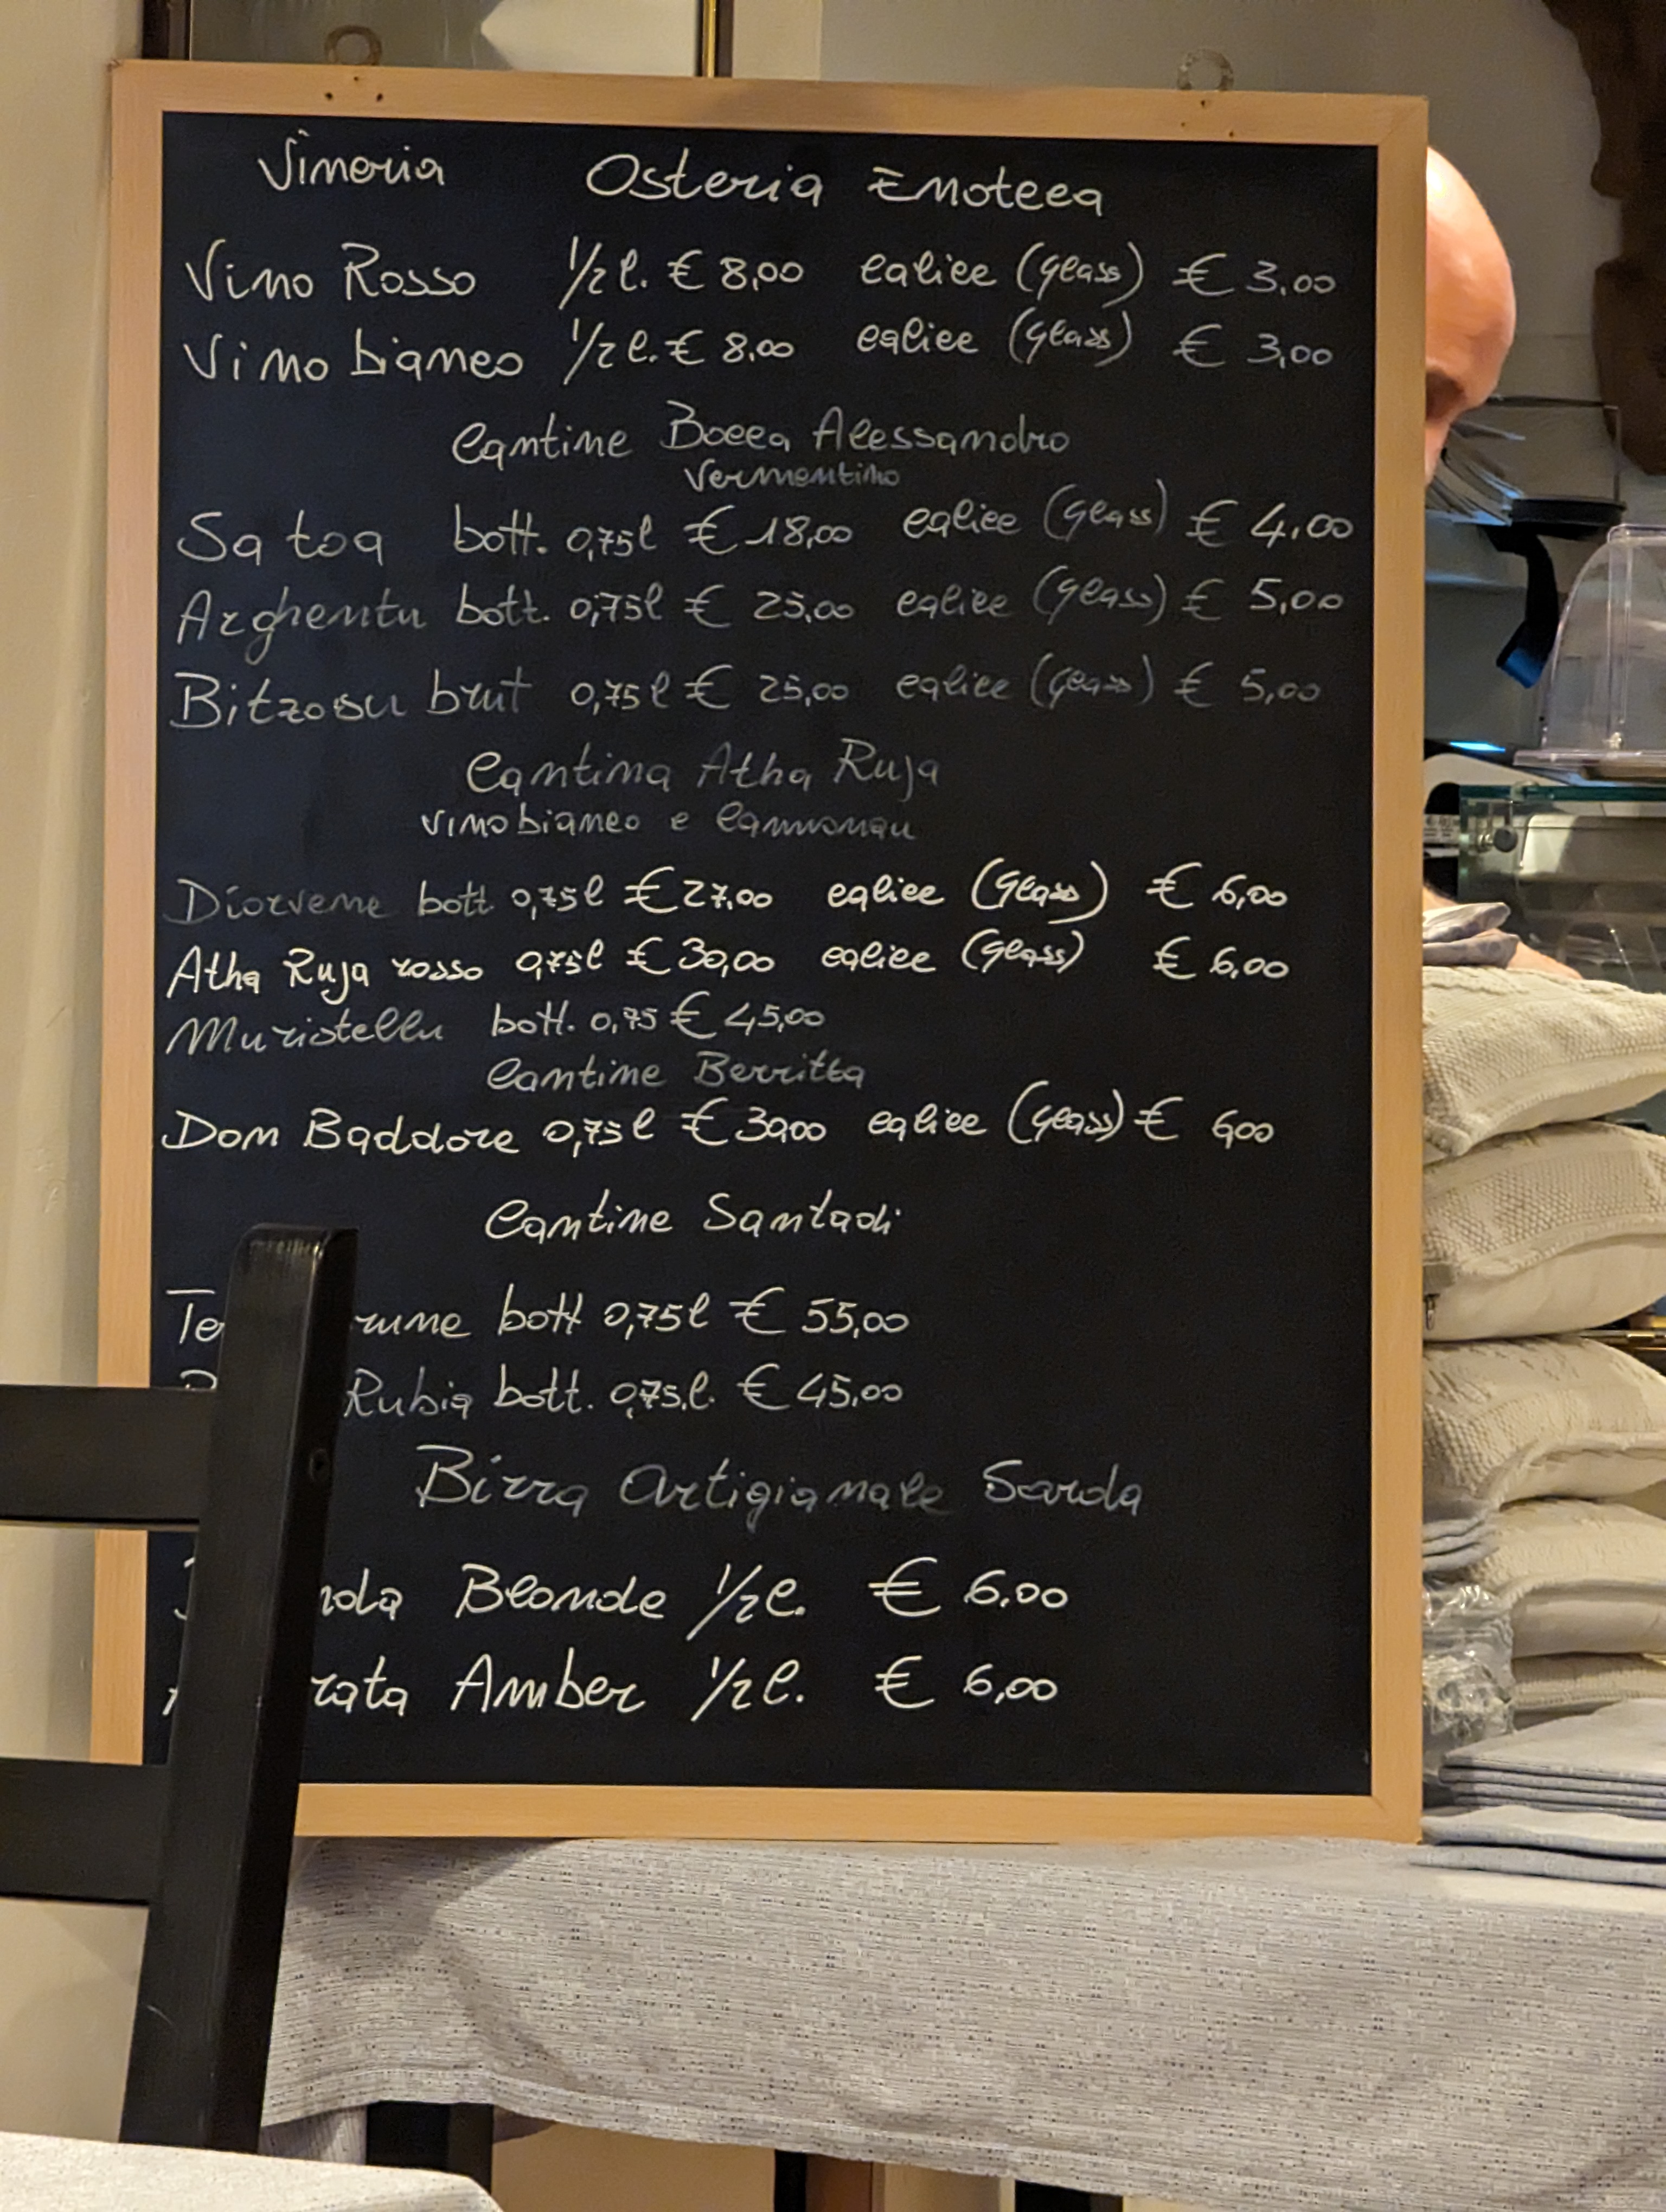 Vineria Osteria Enoteca
Vino Rosso 1/2 l. € 8,00 calice (glass) € 3,00
Vino bianco 1/2 l. € 8,00 calice (glass) € 3,00
Cantine Bocca Alessandro
Vermentino
Sa toa bott. 0,75l € 18,00 calice (glass) € 4,00
Arghentu bott. 0,75l € 25,00 calice (glass) € 5,00
Bitzosu brut 0,75l € 25,00 calice (glass) € 5,00
Cantina Atha Ruja
vino bianco e Cannonau
Diorvene bott 0,75l € 27,00 calice (glass) € 6,00
Atha Ruja rosso 0,75l € 30,00 calice (glass) € 6,00
Muristellu bott. 0,75 € 45,00
Cantine Berritta
Don Baddore 0,75l € 30,00 calice (glass) € 6,00
Cantine Santadi
bott 0,75l € 55,00
Rubia bott. 0,75.l. € 45,00
Birra Artigianale Sarda
Blonde 1/2 l. € 6,00
Amber 1/2 l. € 6,00